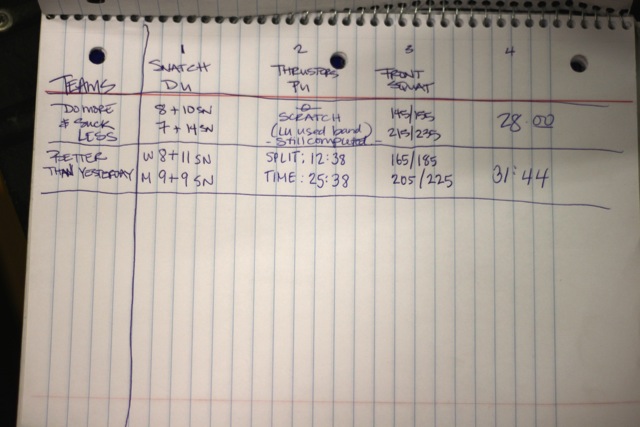 1 2 3 4
TEAMS SNATCH DU THRUSTERS PU FRONT SQUAT
DO MORE 8 + 10 SN -0- 145/155
& SUCK 7 + 14 SN SCRATCH 28:00
LESS (LU used band) 215/235
- Still completed -
BETTER W 8+11 SN SPLIT: 12:38 165/185
THAN YESTERDAY M 9+9 SN TIME: 25:38 205/225 31:44